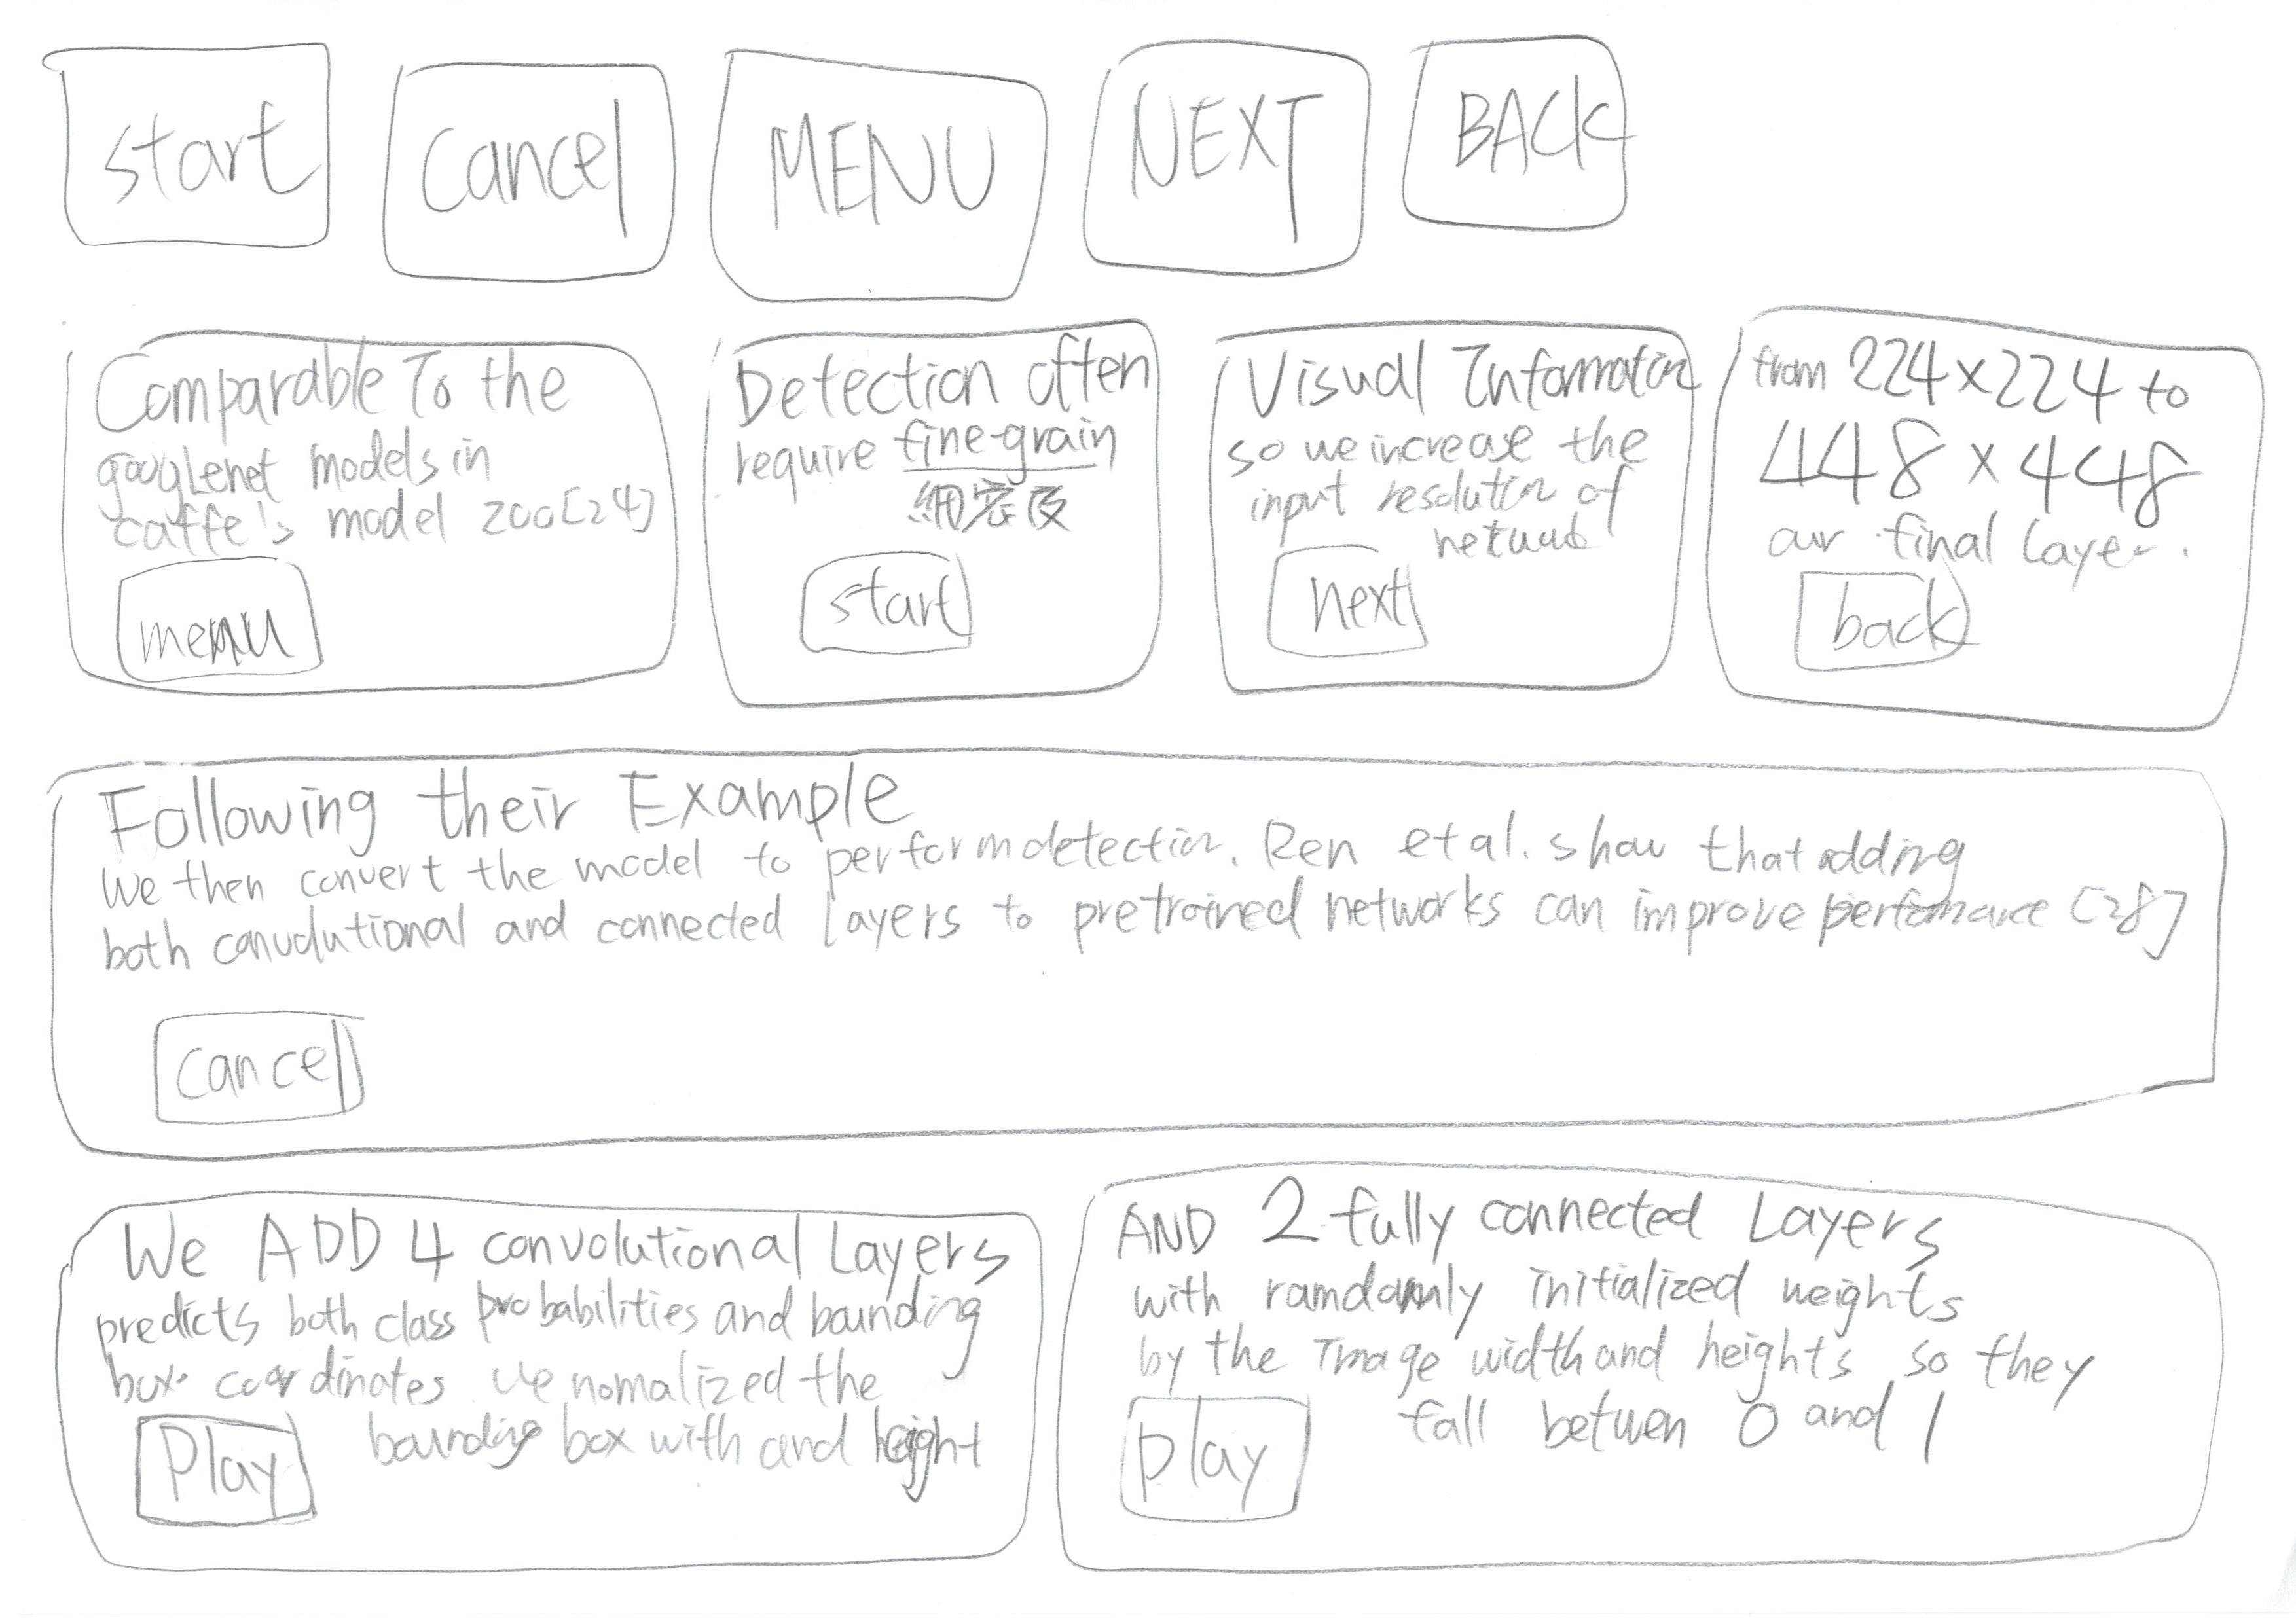 start
cancel
MENU
NEXT
BACK
Comparable To the
googlenet models in
caffe's model zoo[24]
menu
Detection often
require fine-grain
細密度
start
Visual Information
so we increase the
input resolution of
network
next
from 224×224 to
448×448
our final layer.
back
Following their Example
We then convert the model to perform detection. Ren et al. show that adding
both convolutional and connected layers to pretrained networks can improve performance [28]
cancel
We ADD 4 convolutional Layers
predicts both class probabilities and bounding
box coordinates we nomalized the
bounding box with and height
Play
AND 2 fully connected Layers
with ramdomly initialized weights
by the Image width and heights so they
fall betwen 0 and 1
play